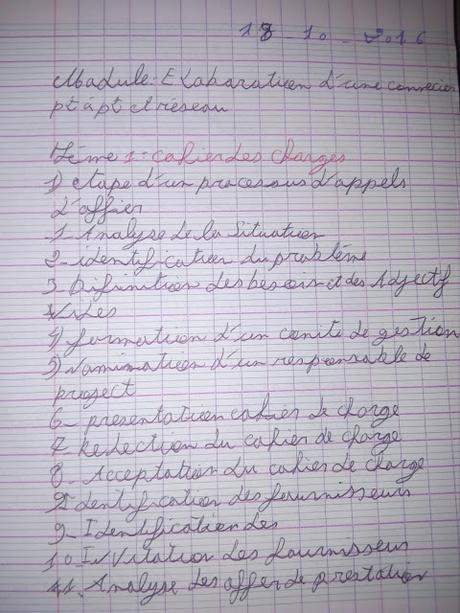 18-10-2016
Madule: Elabaration d'une connecion
pt à pt et réseau
Téme 1: cahier des charges
1) étape d'un processus d'appels
d'affier
1. Analyse de la Situation
2- identification du problème
3- Difinition des besoin et des Adjectif
vides
4) formation d'un comite de gestion
5) Namination d'un responsable de
project
6- presentation cahier de charge
7. Redection du cahier de charge
8- Acceptation du cahier de charge
9 Identification des fournisseurs
9- Identification des
10. InVitation des fournisseur
11. Analyse des offer de prestation